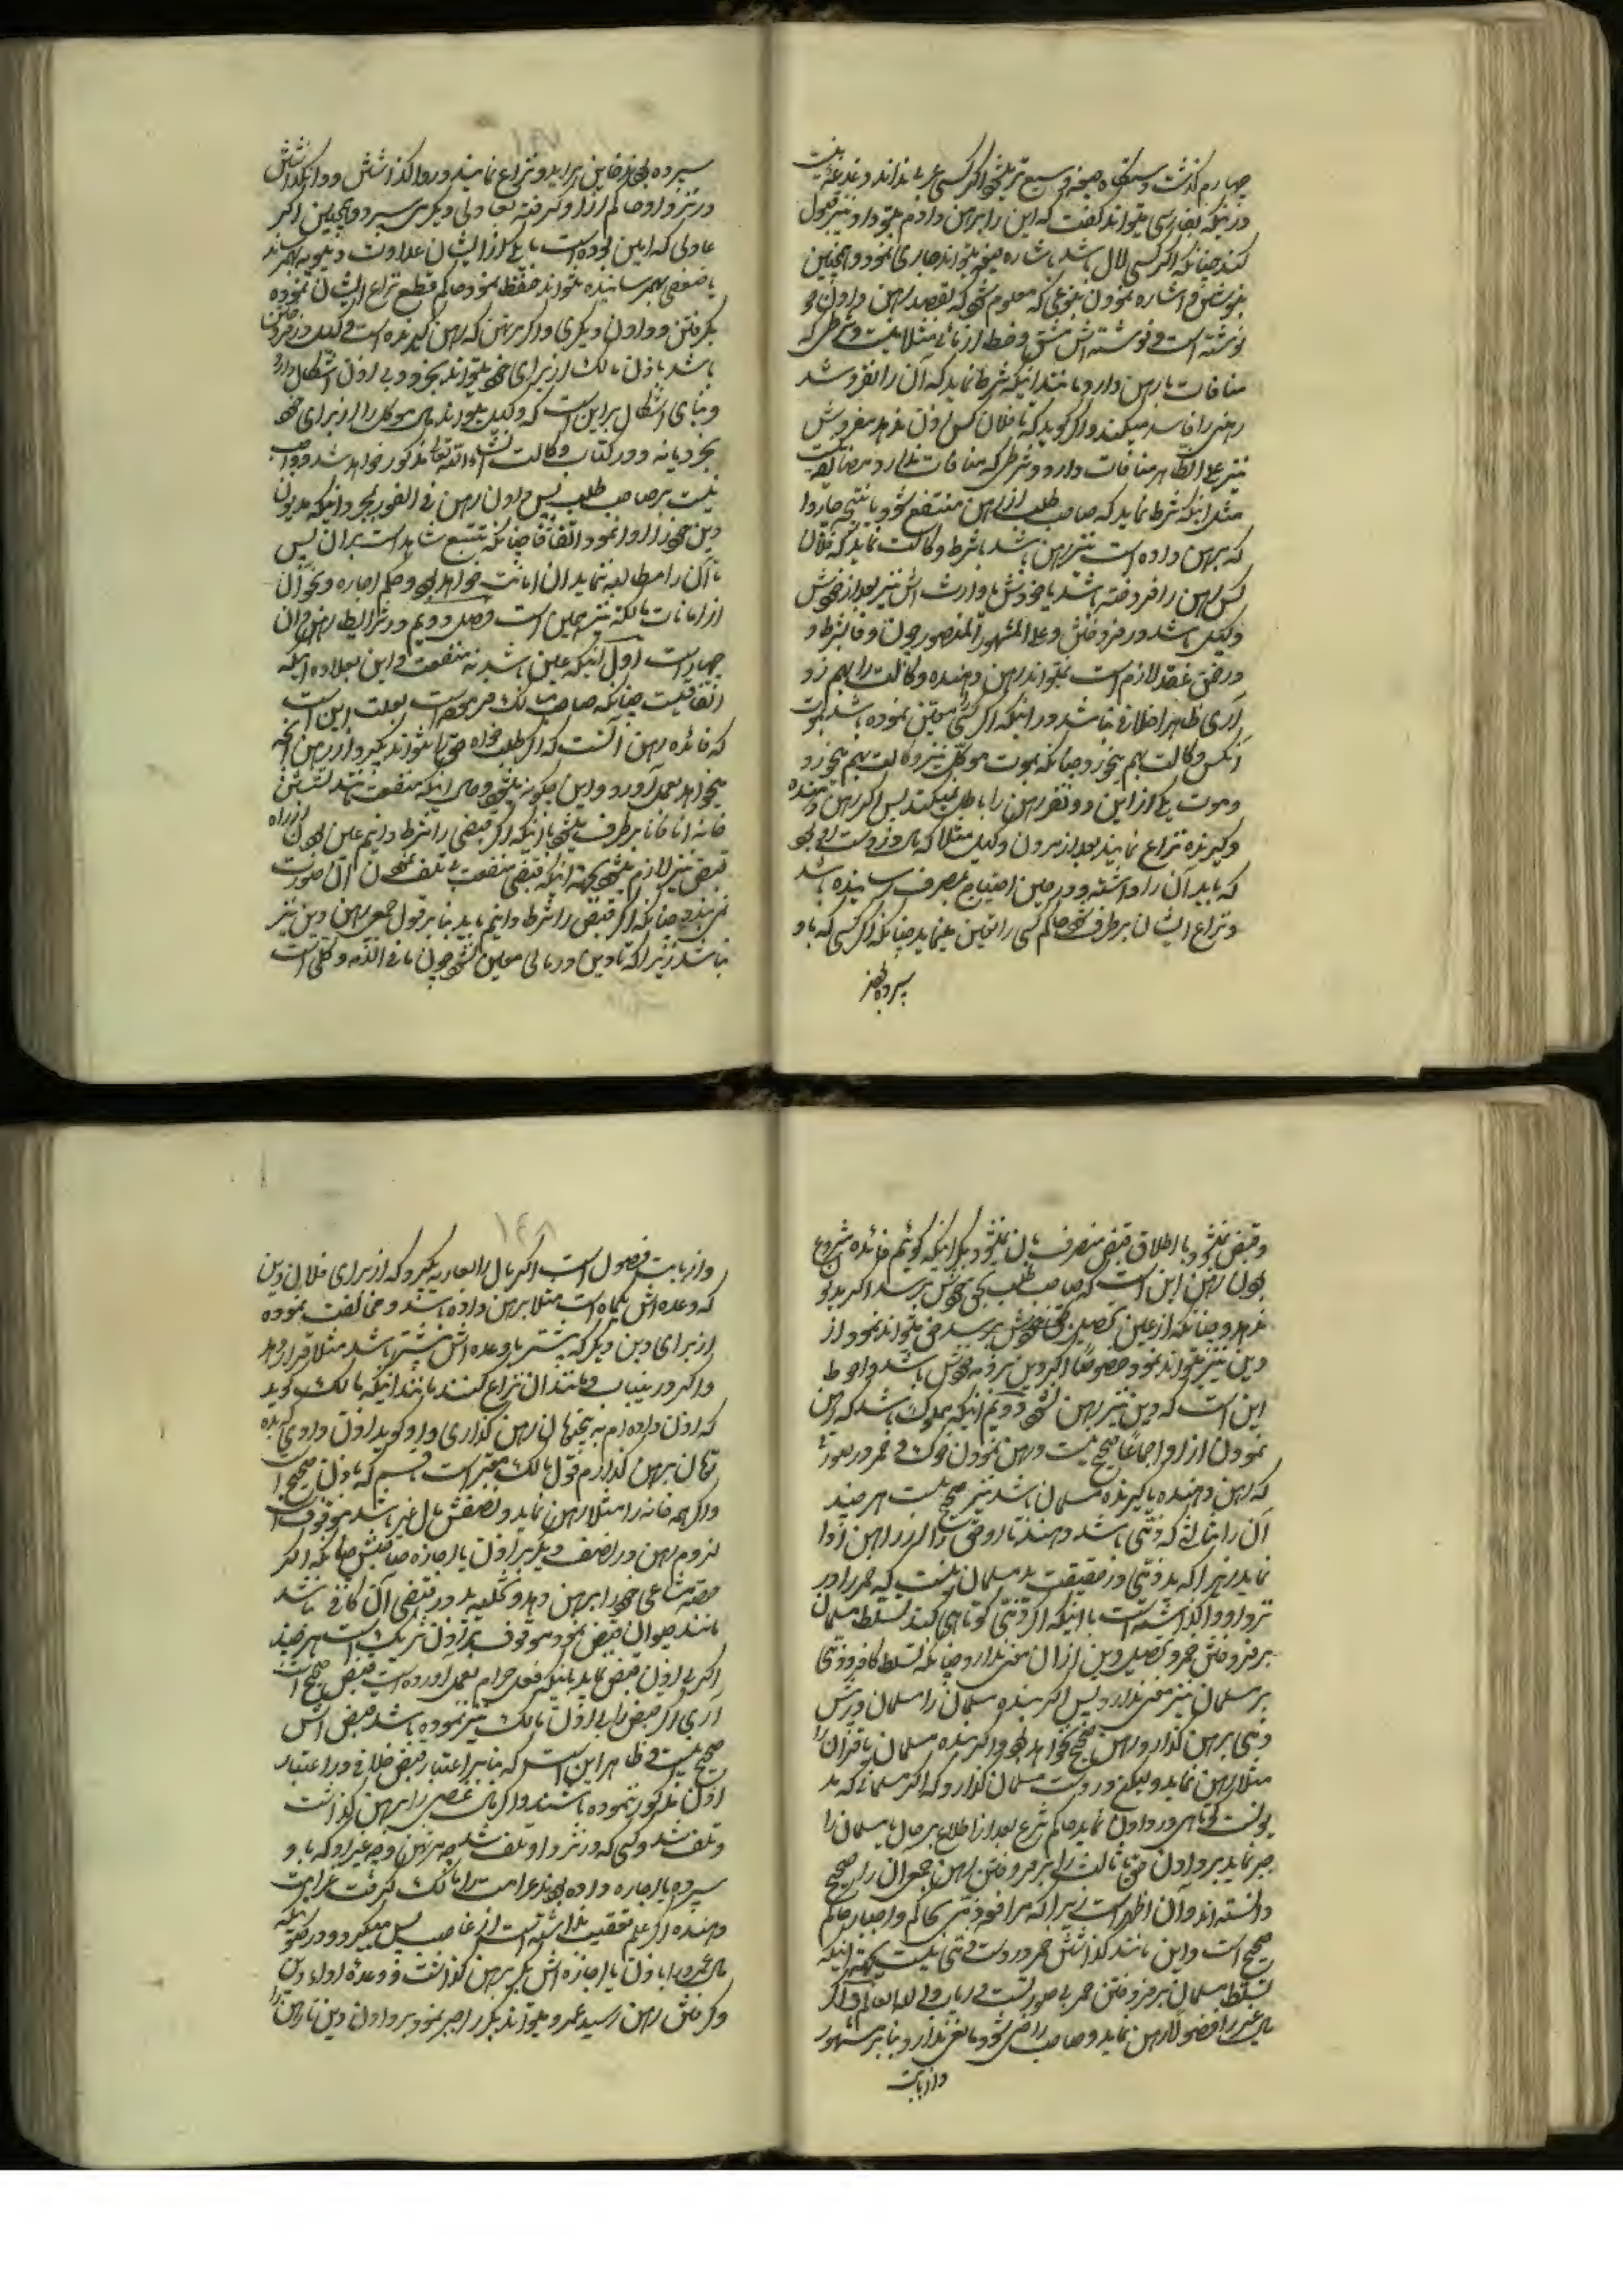 چهارم گذشت و دستگاه صیغه وسیع تر میشود اگر کسی عربی نداند دغدغه نیست
در اینکه بفارسی میتواند گفت که این را برهن دادم بتو و او نیز قبول
کند چنانکه اگر کسی لال باشد باشاره میتواند جاری نمود و همچنین
بنوشتن و اشاره نمودن بنوعی که معلوم شود که بقصد رهن دادن
نوشته است و نوشته اش مشق و خط آزمائی مثلا نیست و شرطی که
منافات با رهن دارد مانند اینکه شرط نماید که آن را نفروشد
رهن را فاسد میکند و اگر گوید که تا فلان کس اذن ندهد مفروش
نیز علی الظاهر منافات دارد و شرطی که منافات ندارد مضایقه نیست
مثل اینکه شرط نماید که صاحب طلب از رهن منتفع شود یا نتیجه چاروا
که برهن داده است نیز رهن باشد یا شرط وکالت نماید که فلان
کس رهن را فروخته باشد یا خودش یا وارث اش نیز بعد از خودش
وکیل باشد در فروختن و علی المشهور المنصور چون وفا بشرط
در ضمن عقد لازم است نمیتواند رهن دهنده وکالت را بهم زد
آری ظاهرا خلافی نباشد در اینکه اگر کسی معین نموده باشد بموت
آنکس وکالت بهم میخورد چنانکه بموت موکل نیز وکالت بهم میخورد
و موت یکی از این دو نفر رهن را باطل نمیکند پس اگر رهن دهنده
و گیرنده نزاع نمایند بعد از مردن وکیل مثلا که مال در دست او بود
که باید آن را داشته و در حین احتیاج بمصرف رسانیده باشد
و نزاع ایشان برطرف نشود حاکم کسی را تعیین مینماید چنانکه اگر کسی که باو
سپرده بودند
سپرده بودند خاین برآید و نزاع نمایند در واگذاشتن و وانگذاشتن
در نزد او حاکم از او گرفته بعادلی دیگر می سپرد و همچنین اگر
عادلی که امین بوده است با یکی از ایشان عداوت دنیویه بهمرساند
یا ضعفی بهمرسانیده نتواند حفظ نمود حاکم قطع نزاع ایشان نموده
بگرفتن و دادن دیگری و اگر مرتهن که رهن گیرنده است وکیل در فروختن
باشد باذن مالک از برای خود میتواند بخرد و بی اذن اشکال دارد
و بنای اشکال بر این است که وکیل میتواند مال موکل را از برای خود
بخرد یا نه و در کتاب وکالت انشاء الله تعالی مذکور خواهد شد و واجب
نیست بر صاحب طلب پس دادن رهن فی الفور بمجرد اینکه مدیون
دین خود را ادا نمود اتفاقا چنانکه تتبع شاهد است بر آن پس
تا آن را مطالبه ننماید آن امانت خواهد بود و حکم اجاره و نحو آن
از امانات مالکیه نیز همین است فصل دویم در شرایط رهن و آن
چهار است اول اینکه عین باشد نه منفعت و این بعلاوه اینکه
اتفاقیست چنانکه صاحب مسالک مصرح است بعلت این است
که فائده رهن آنست که اگر طلب خواه حق را نتواند بگیرد از رهن آنچه
میخواهد بعمل آورد و این چگونه میشود و حال اینکه منفعت مانند نشستن
خانه آنا فآنا برطرف میشود با اینکه اگر قبض را شرط دانیم عین بودن از راه
قبض نیز لازم میشود بجهة اینکه قبض منفعت بی تلف نمودن آن صورت
نمی بندد چنانکه اگر قبض را شرط دانیم باید بنا بر قول جمعی رهن دین نیز
نباشد زیرا که تا دین در مالی معین نشود چون ما فی الذمه و کلی است
و قبض نمیشود یا اطلاق قبض منصرف بآن نمیشود مگر اینکه گوئیم فائده مشروع
بودن رهن این است که صاحب طلب بحق خودش برسد اگر مدیون
ندهد و چنانکه از عین تحصیل حق خودش بر سر حق میتواند نمود از
دین نیز میتواند نمود خصوصا اگر دین بر ذمه خودش باشد و احوط
این است که دین نیز رهن نشود دویم اینکه مملوک باشد که رهن
نمودن آزاد اجماعا صحیح نیست و رهن نمودن خوک و خمر در صورتی
که رهن دهنده یا گیرنده مسلمان باشد نیز صحیح نیست هر چند
آن را بثالثی که ذمی باشد دهند تا در وقتش اگر در رهن ادا
نماید زیرا که ید ذمی در حقیقت ید مسلمان نیست که خمر را در
نزد او واگذاشته است با اینکه اگر ذمی کوتاهی کند تسلط مسلمان
بر فروختن خمر و تحصیل دین از آن معنی ندارد چنانکه تسلط کافر ذمی
بر مسلمان نیز معنی ندارد پس اگر بنده مسلمان را مسلمان در پیش
ذمی برهن گذارد رهن صحیح نخواهد بود و اگر بنده مسلمان یا قرآن را
مثلا رهن نماید و لیکن در دست مسلمان گذارد که اگر مسلمانی که مد
یونست کوتاهی در دادن نماید حاکم شرع بعد از اطلاع بر حال یا مسلمان را
جبر نماید بر دادن حق یا ثالث را بر فروختن رهن جمعی آن را صحیح
دانسته اند و آن اظهر است زیرا که مرافعه ذمی بحاکم و اجبار حاکم
صحیح است و این مانند گذاشتن خمر در دست ذمی نیست بجهة اینکه
تسلط مسلمان بر فروختن خمر بی صورتست و ربانی لدی العالم و اگر
مال غیر را فضولا رهن نماید و صاحب راضی شود مانعی ندارد بنا بر مشهور
و از بابت
و از بابت فضول است اگر مال را بعاریه بگیرد که از برای فلان دین
که وعده اش یکماه است مثلا برهن داده باشد و مخالفت نموده
از برای دین دیگر که بیشتر یا وعده اش بیشتر باشد مثلا قرار دهد
و اگر در ینباب و مانند آن نزاع کنند مانند اینکه مالک گوید
که اذن داده ام به پنجتومان رهن گذاری و او گوید اذن دادی که بده
تومان برهن گذارم قول مالک معتبر است با قسم که باذن صحیح است
و اگر همه خانه را مثلا رهن نماید و نصفش مال غیر باشد موقوف است
لزوم رهن در نصف دیگر بر اذن یا اجازه صاحبش چنانکه اگر
حصه مشاعی خود را برهن دهد و تخلیه ید در قبض آن کافی نباشد
مانند حیوان قبض نمودن موقوف بر اذن شریک است هر چند
اگر بی اذن قبض نماید با اینکه فعل حرام بعمل آورده است قبض صحیح است
آری اگر قبض را بی اذن مالک نیز نموده باشد قبض اش
صحیح نیست و ظاهر این است که بنا بر اعتبار قبض خلافی در اعتبار
اذن مذکور ننموده باشند و اگر مال غصبی را برهن گذاشت
و تلف شد و کسی که در نزد او تلف شد چه مرتهن و چه غیر او که باو
سپرده یا اجاره داده بودند غرامت را مالک گرفت غرامت
دهنده اگر علم بغصبیت نداشته است از غاصب پس میگیرد و در صورتیکه
مال عمرو را باذن یا اجازه اش بکر برهن گذاشت و وعده اداء دین
و گرفتن رهن رسید عمرو میتواند بکر را جبر نمود بر دادن دین تا رهن را